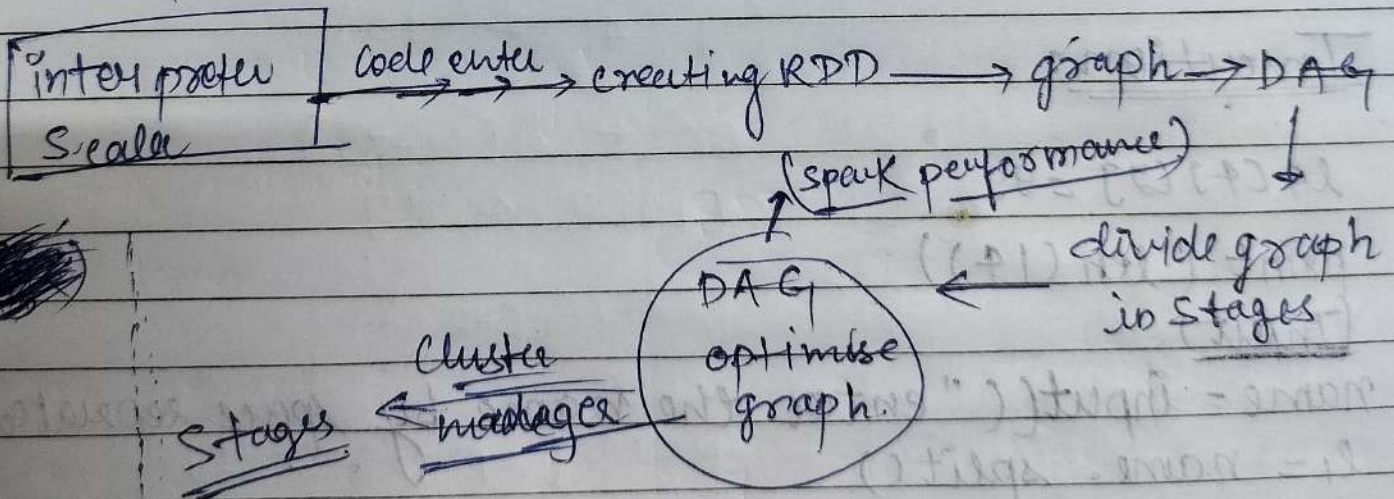 interpreter code enter creating RDD graph DAG
Scala
(spark performance)
divide graph
in stages
DAG
optimise
graph.
Cluster
manager
Stages